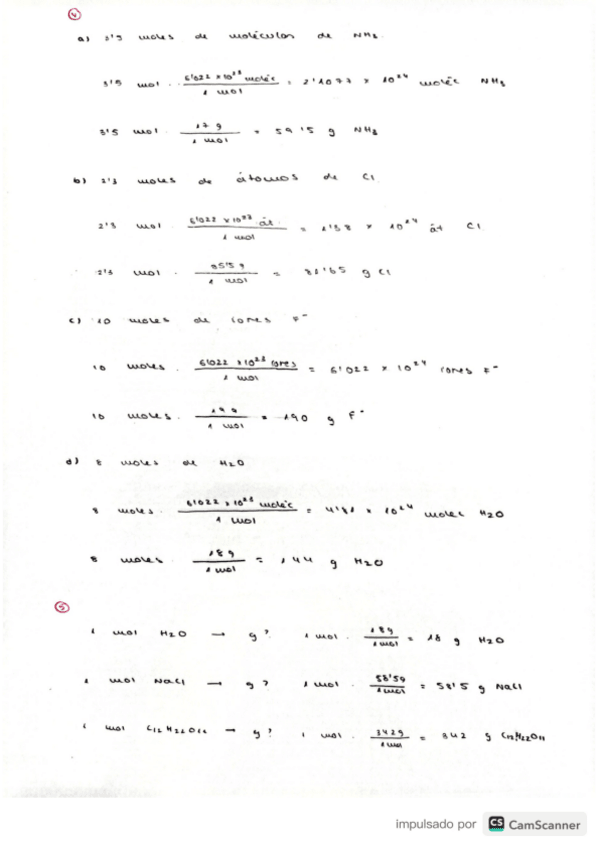 4
a) 3'5 moles de moléculas de NH3.
3'5 mol · 6'022 x10^23 moléc / 1 mol = 2'1077 x 10^24 moléc NH3
3'5 mol · 17 g / 1 mol = 59'5 g NH3
b) 2'3 moles de átomos de Cl
2'3 mol · 6'022 x10^23 át / 1 mol = 1'38 x 10^24 át Cl
2'3 mol · 35'5 g / 1 mol = 81'65 g Cl
c) 10 moles de iones F-
10 moles · 6'022 x10^23 iones / 1 mol = 6'022 x 10^24 iones F-
10 moles · 19 g / 1 mol = 190 g F-
d) 8 moles de H2O
8 moles · 6'022 x10^23 moléc / 1 mol = 4'81 x 10^24 moléc H2O
8 moles · 18 g / 1 mol = 144 g H2O
5
1 mol H2O → g? 1 mol · 18 g / 1 mol = 18 g H2O
1 mol NaCl → g? 1 mol · 58'5 g / 1 mol = 58'5 g NaCl
1 mol C12H22O11 → g? 1 mol · 342 g / 1 mol = 342 g C12H22O11
impulsado por CS CamScanner